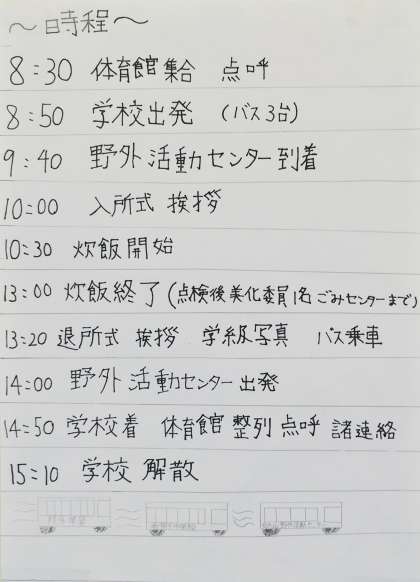 ～日時程～
8:30 体育館集合 点呼
8:50 学校出発 (バス3台)
9:40 野外活動センター到着
10:00 入所式 挨拶
10:30 炊飯開始
13:00 炊飯終了(点検後美化委員1名ごみセンターまで)
13:20 退所式 挨拶 学級写真 バス乗車
14:00 野外活動センター出発
14:50 学校着 体育館整列点呼 諸連絡
15:10 学校 解散